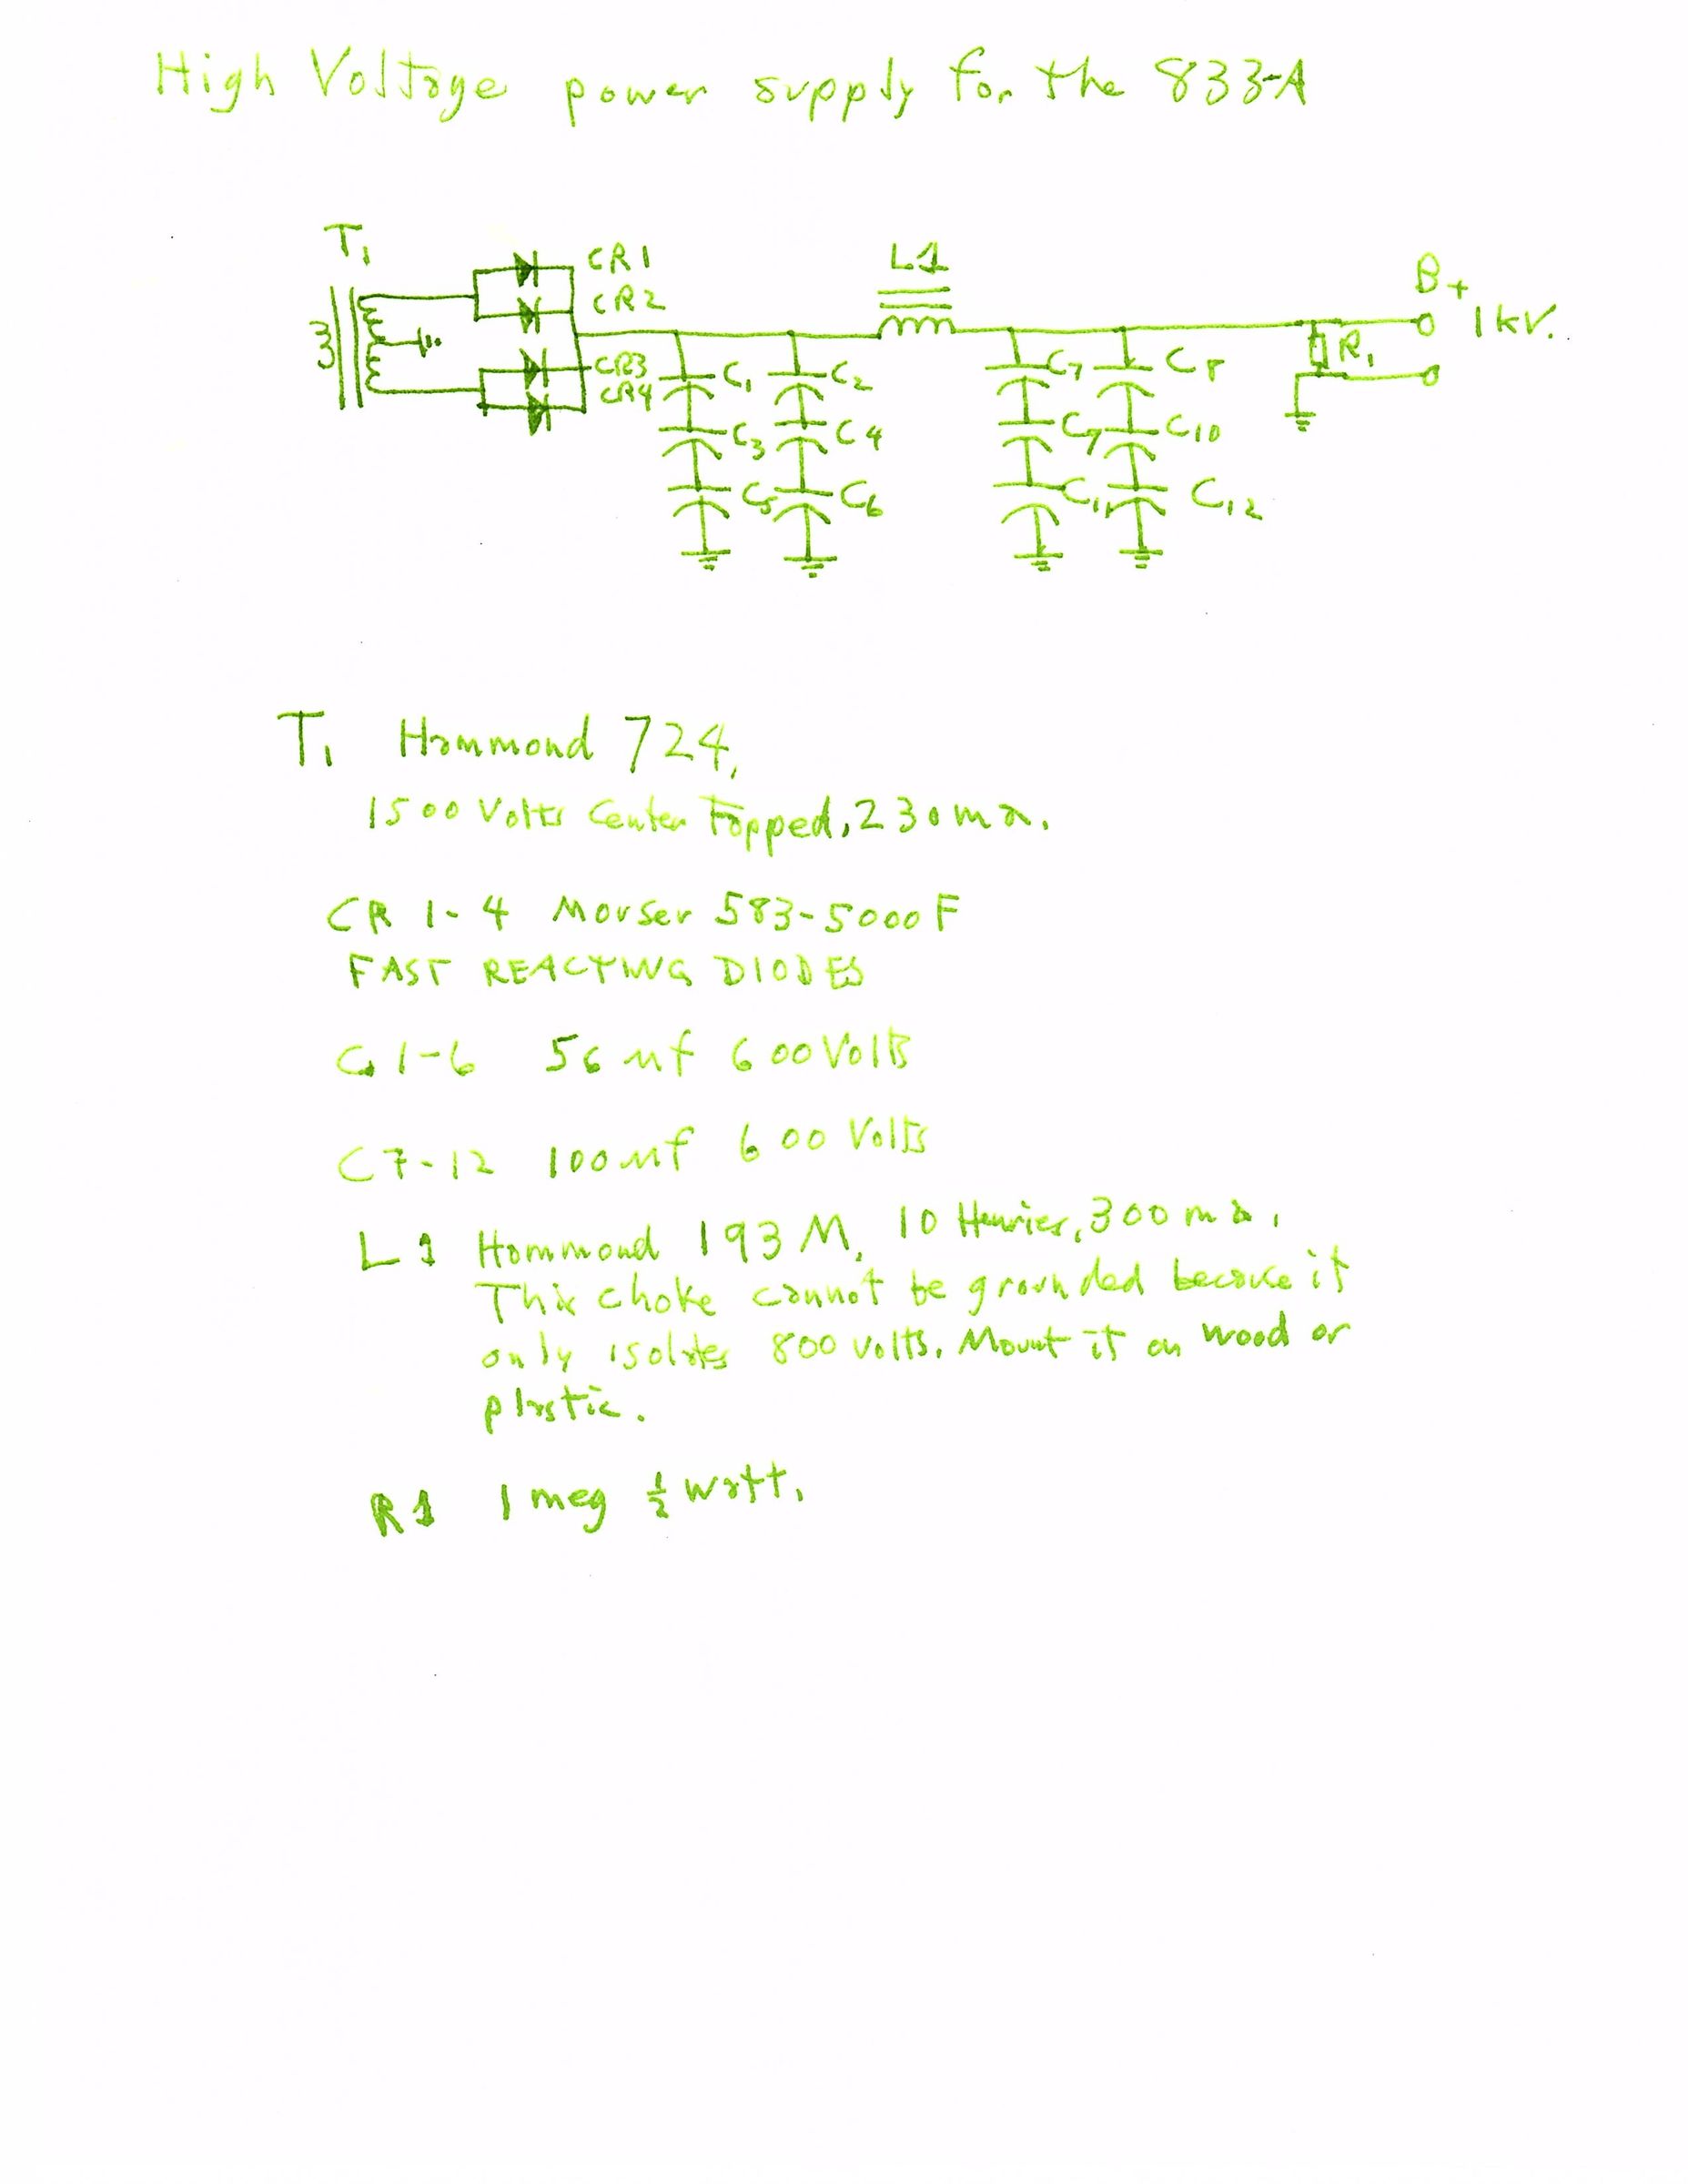 High Voltage power supply for the 833-A
T1
CR1
CR2
CR3
CR4
L1
B+
1kV.
R1
C1
C2
C7
C8
C3
C4
C7
C10
C5
C6
C11
C12
T1 Hammond 724,
1500 Volts Center Tapped, 230ma.
CR 1-4 Mouser 583-5000F
FAST REACTING DIODES
C 1-6 56 uf 600 Volts
C7-12 100 uf 600 Volts
L1 Hammond 193M, 10 Henries, 300 ma,
This choke cannot be grounded because it
only isolates 800 volts. Mount it on wood or
plastic.
R1 1 meg ½ watt.